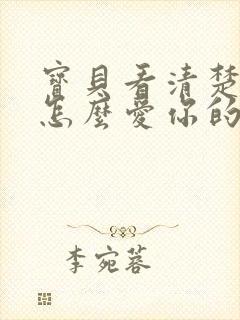 寶貝看清楚
怎麼愛你的
李宛蓉